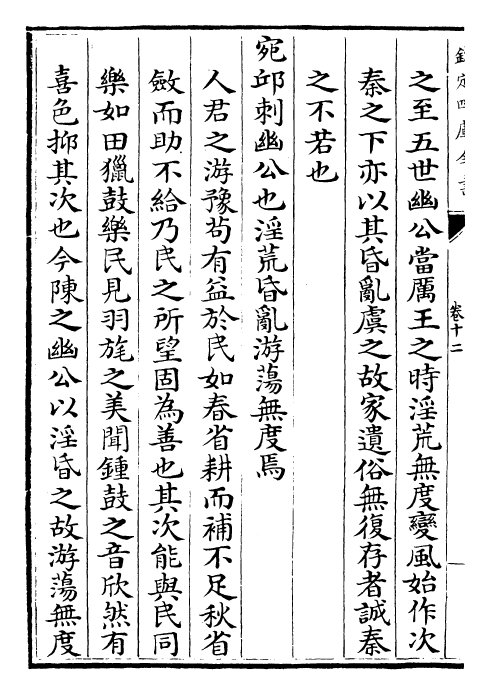 欽定四庫全書
卷十二
之至五世幽公當厲王之時淫荒無度變風始作次
秦之下亦以其昏亂虞之故家遺俗無復存者誠秦
之不若也
宛邱刺幽公也淫荒昏亂游蕩無度焉
人君之游豫苟有益於民如春省耕而補不足秋省
斂而助不給乃民之所望固為善也其次能與民同
樂如田獵鼓樂民見羽旄之美聞鍾鼓之音欣然有
喜色抑其次也今陳之幽公以淫昏之故游蕩無度